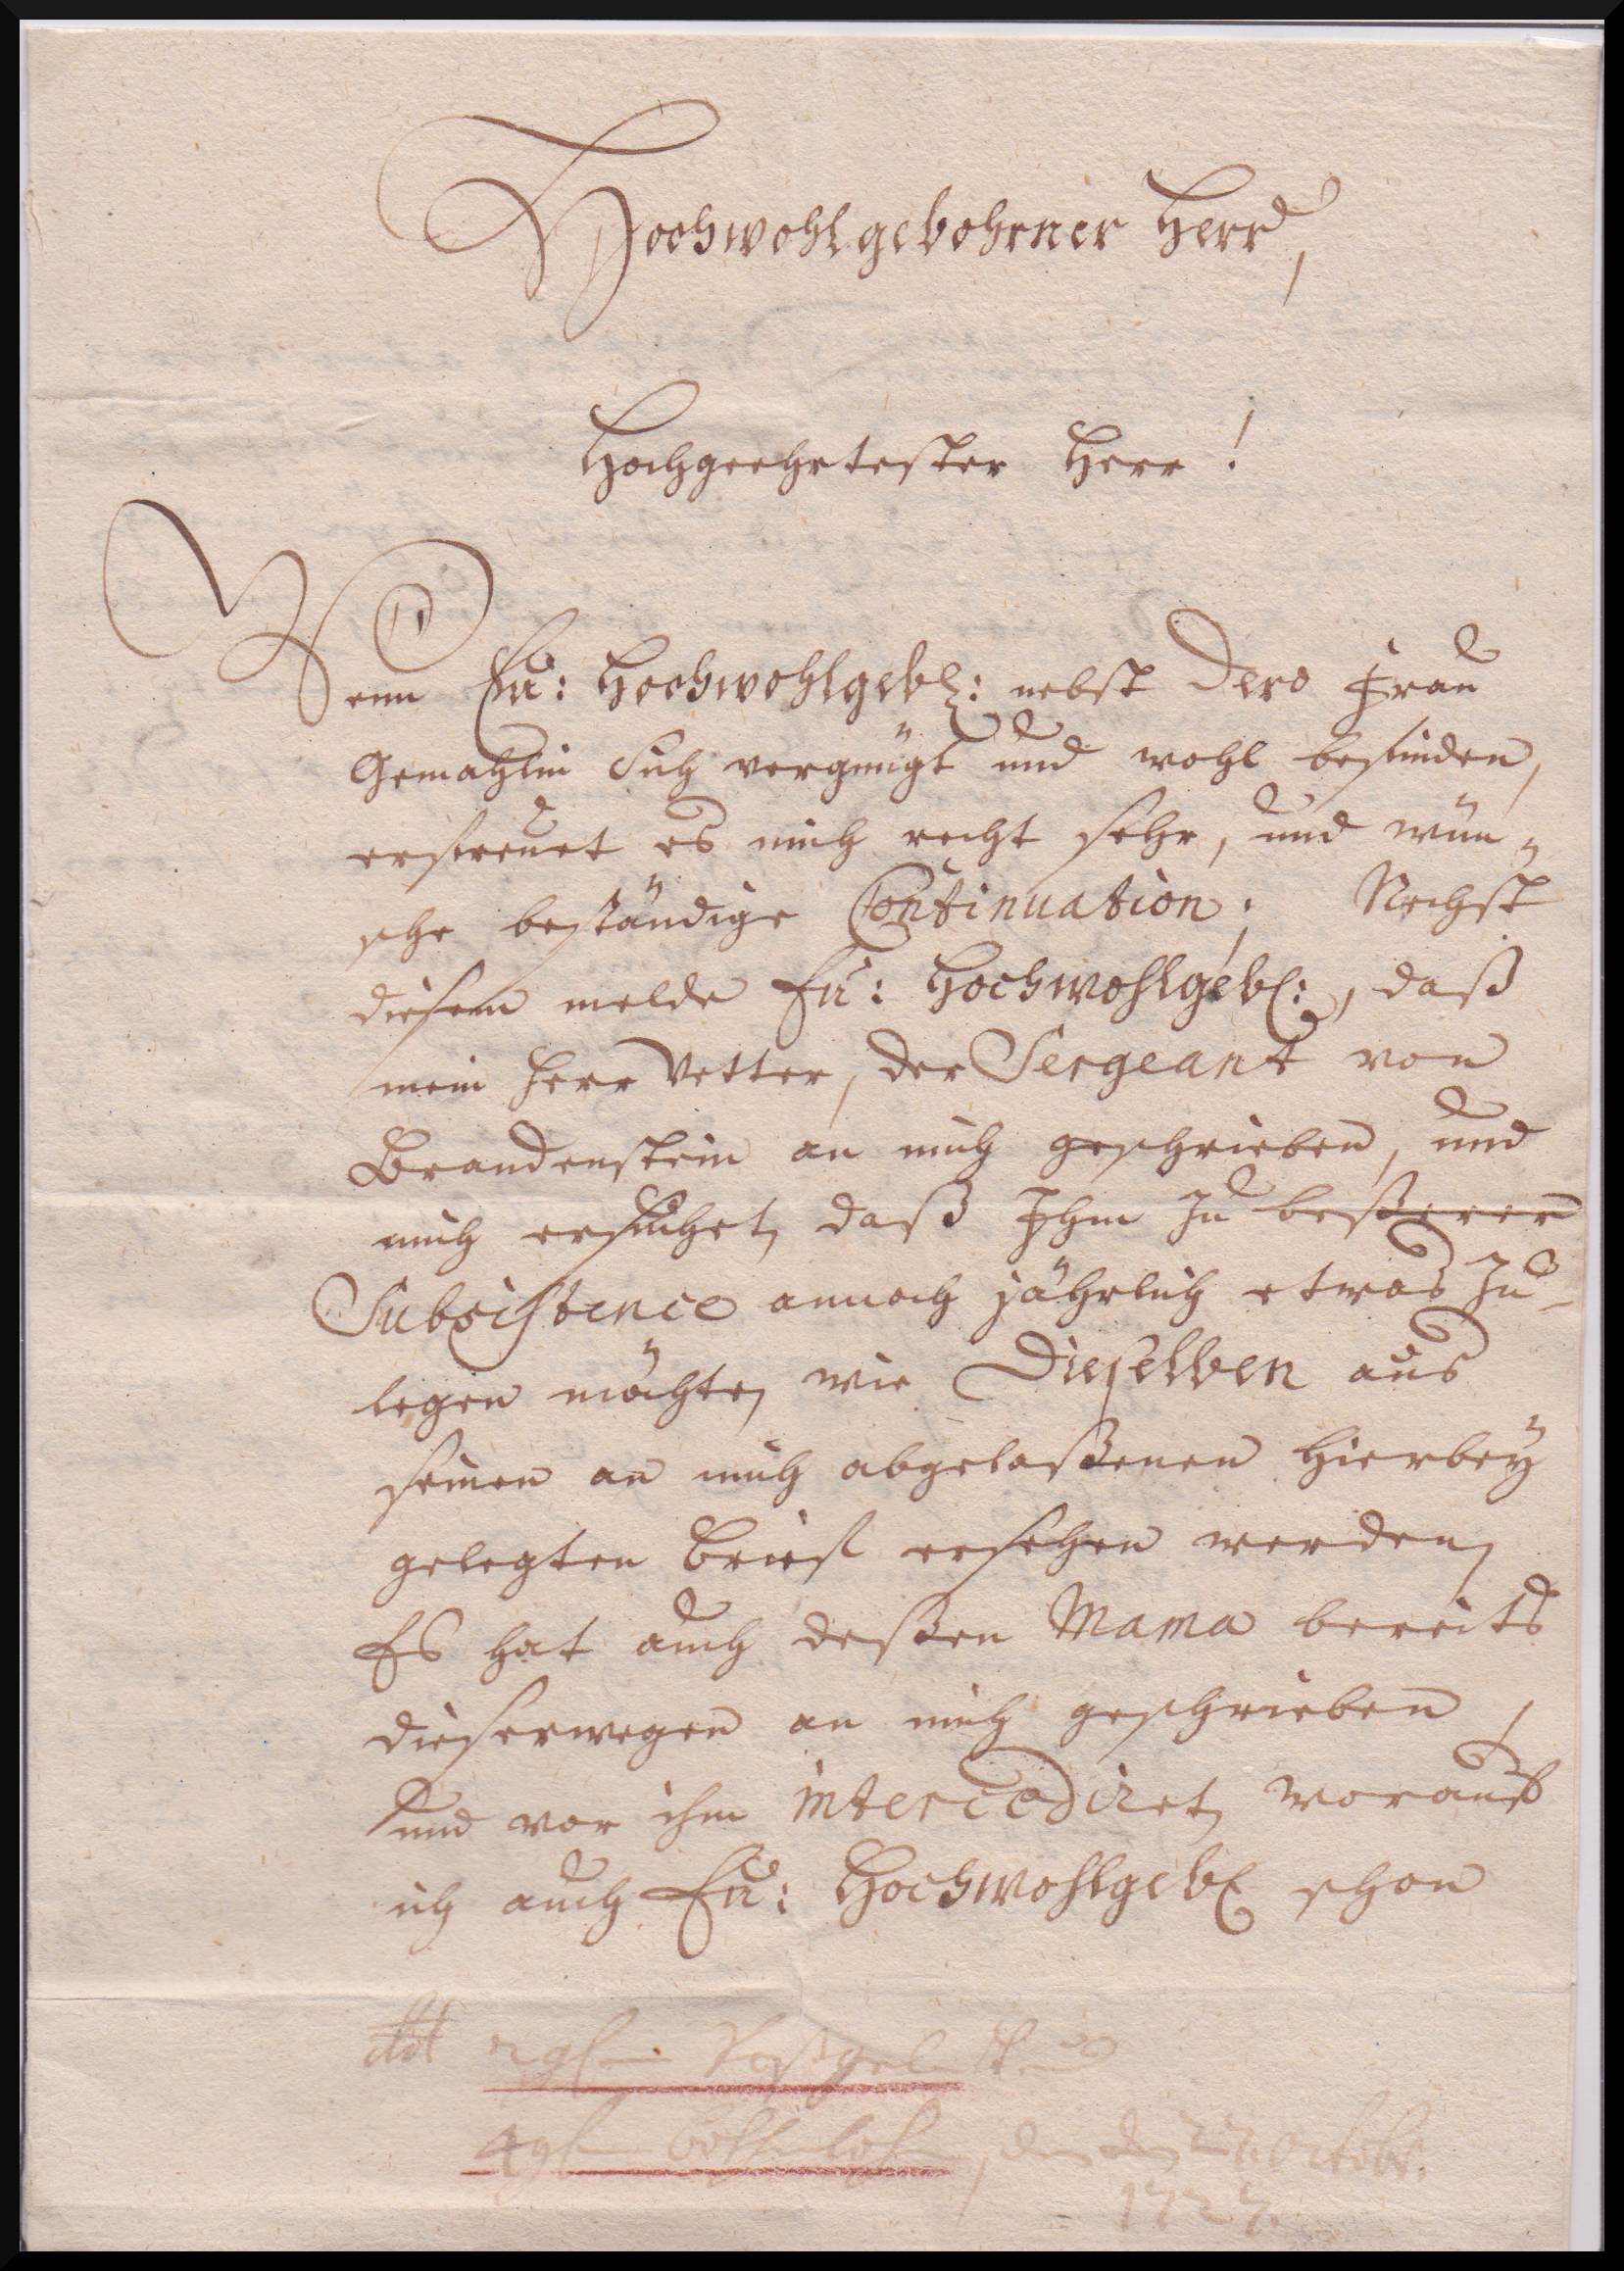 Hochwohlgebohrner Herr,
Hochgeehrtester Herr!
Wenn Eu: Hochwohlgeb: nebst Dero Frau
Gemahlin Sich vergnügt und wohl befinden,
erfreuet es mich recht sehr, und wün„
sche beständige Continuation; Nechst
diesem melde Eu: Hochwohlgeb:, daß
mein Herr Vetter, der Sergeant von
Brandenstein an mich geschrieben, und
mich ersuchet, daß Ihm zu beßerer
Subsistence annoch jährlich etwas zu-
legen möchte, wie Dieselben aus
seinen an mich abgelaßenen hierbey
gelegten Brief ersehen werden,
Es hat auch deßen Mama bereits
dieserwegen an mich geschrieben,
und vor ihm intercediret, worauf
ich auch Eu: Hochwohlgeb schon
2 gl
4 gl Bothenlohn, den 22 Octobr.
1727.